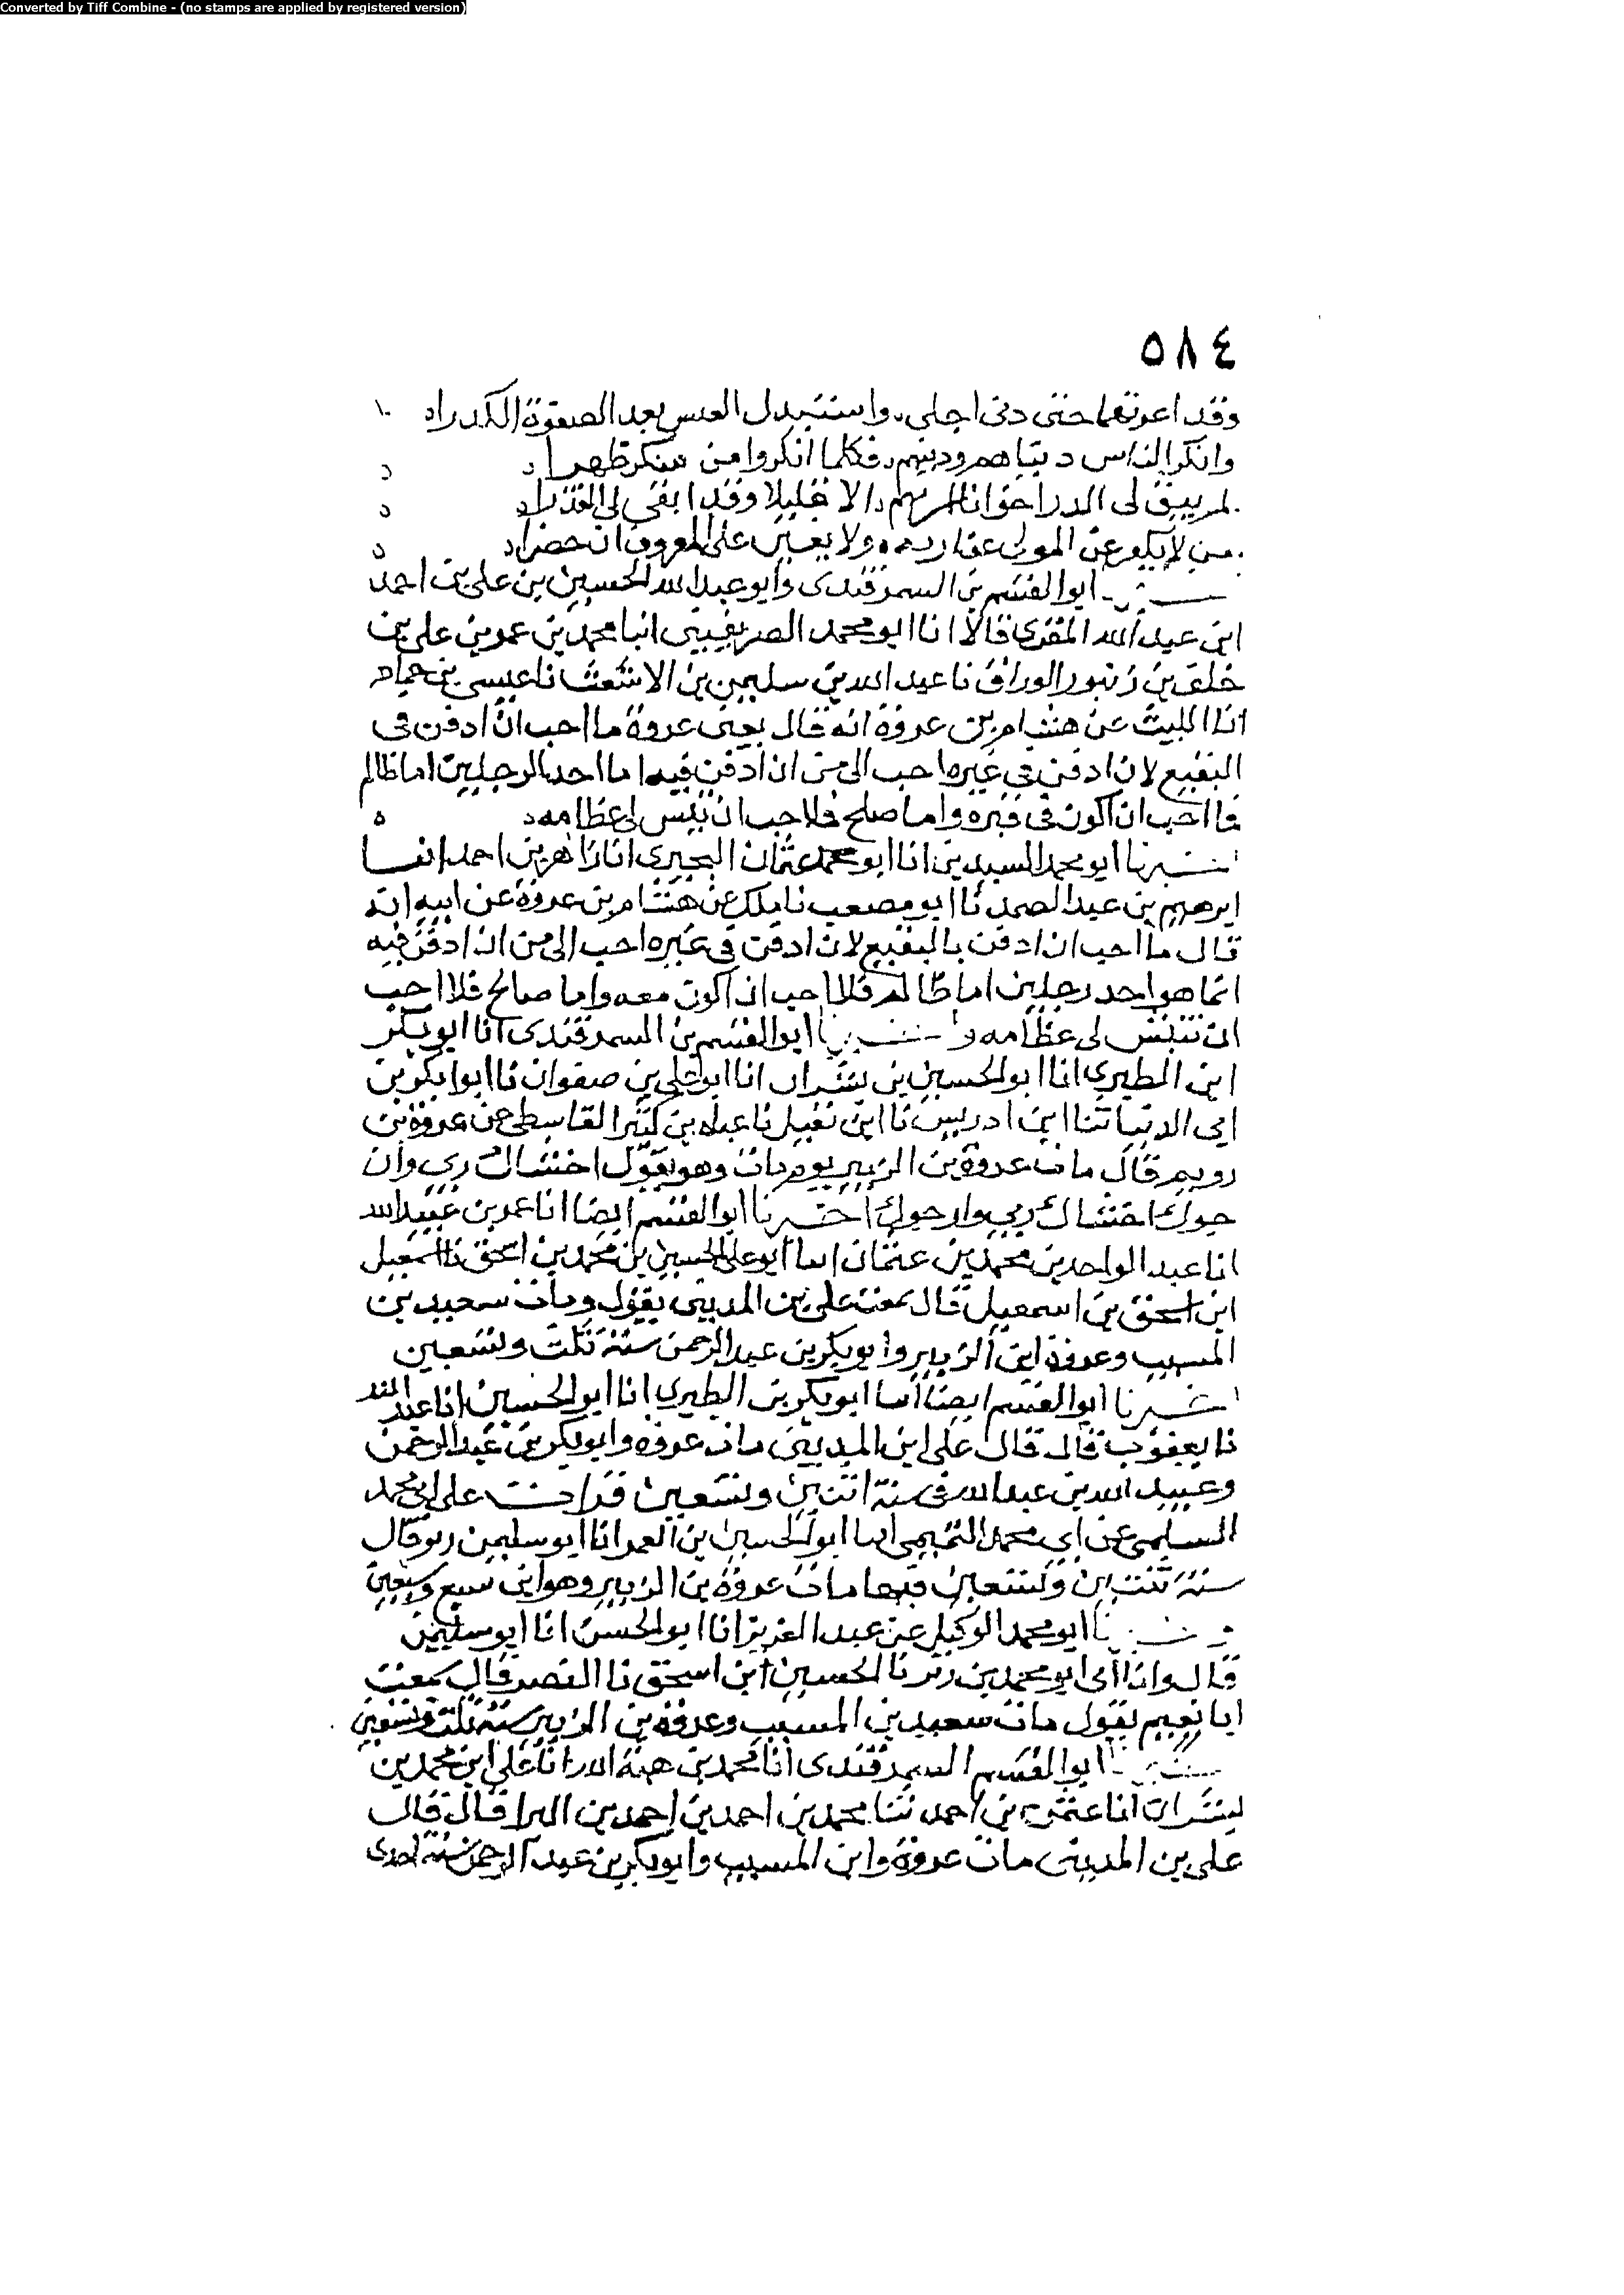 Converted by Tiff Combine - (no stamps are applied by registered version)
٥٨٤
وقد اعوتها حتى دنى اجلى، واستبدل العيس بعد الصفوة الكدرا
وانكر الناس دنياهم ودينهم، فكلما انكروا من منكر ظهرا
لم يبق لى الدر اخوانا لهم، الا قليلا وقد ابقى لى القذرا
من لا يكلو عن المولى عقاربه ولا يعين على المعروف ان حضرا
ابو القسم بن السمرقندى وابو عبد الله الحسين بن على بن احمد
ابن عبد الله المقرى قالا انا ابو محمد الصريفينى انبا محمد بن عمر بن على بن
خلف بن زنبور الوراق نا عبد الله بن سليمن بن الاشعث نا عيسى بن حماد
انا الليث عن هشام بن عروة انه قال يعنى عروة ما احب ان ادفن فى
البقيع لان ادفن فى غيره احب الى من ان ادفن فيه اما احد الرجلين اما ظالم
فما احب ان اكون فى قبره واما صلح فلا احب ان ينبس لى عظامه
اخبرنا ابو محمد السيدى انا ابو عثمان البحيرى انا زاهر بن احمد انبا
ابرهيم بن عبد الصمد نا ابو مصعب نا ملك عن هشام بن عروة عن ابيه انه
قال ما احب ان ادفن بالبقيع لان ادفن فى غيره احب الى من ان ادفن فيه
انما هو احد رجلين اما ظالم فلا احب ان اكون معه واما صالح فلا احب
ان تنبش لى عظامه اخبرنا ابو القسم بن السمرقندى انا ابو بكر
ابن الطبرى انا ابو الحسين بن بشران انا ابو على بن صفوان نا ابو بكر بن
ابى الدنيا ثنا ابن ادريس نا ابن نفيل نا عباد بن كثير القاسطى عن عروة بن
رويم قال مات عروة بن الزبير يوم مات وهو يقول اخشاك ربى وان
جوك اخشاك ربى وارجوك اخبرنا ابو القسم ايضا انا عمر بن عبيد الله
انا عبد الواحد بن محمد بن عثمان انبا ابو على الحسين بن محمد بن اسحق نا اسمعيل
ابن اسحق بن اسمعيل قال سمعت على بن المدينى يقول ومات سعيد بن
المسيب وعروة ابن الزبير وابو بكر بن عبد الرحمن سنة ثلث وتسعين
اخبرنا ابو القسم ايضا انبا ابو بكر بن الطبرى انا ابو الحسين انا عبد الله
نا يعقوب قال قال على ابن المدينى مات عروة وابو بكر بن عبد الرحمن
وعبيد الله بن عبد الله فى سنة اثنتين وتسعين قرات على ابى محمد
السلمى عن ابى محمد التميمى انبا ابو الحسين بن العمر انا ابو سليمن ربر قال
سنة ثنتين وتسعين فيها مات عروة بن الزبير وهو ابن سبع وسبعين
اخبرنا ابو محمد الوكيل عن عبد العزيز انا ابو الحسن انا ابو سليمن
قال وانا ابى ابو محمد بن زبر نا الحسين ابن اسحق نا النصر قال سمعت
ابا نعيم يقول مات سعيد بن المسيب وعروة بن الزبير سنة ثلث وتسعين
ابو القسم السمرقندى انا محمد بن هبة الله انا على ابن محمد بن
بشران انا عثمن بن احمد ثنا محمد بن احمد بن احمد بن البرا قال قال
على بن المدينى مات عروة وابن المسيب وابو بكر بن عبد الرحمن سنة احدى